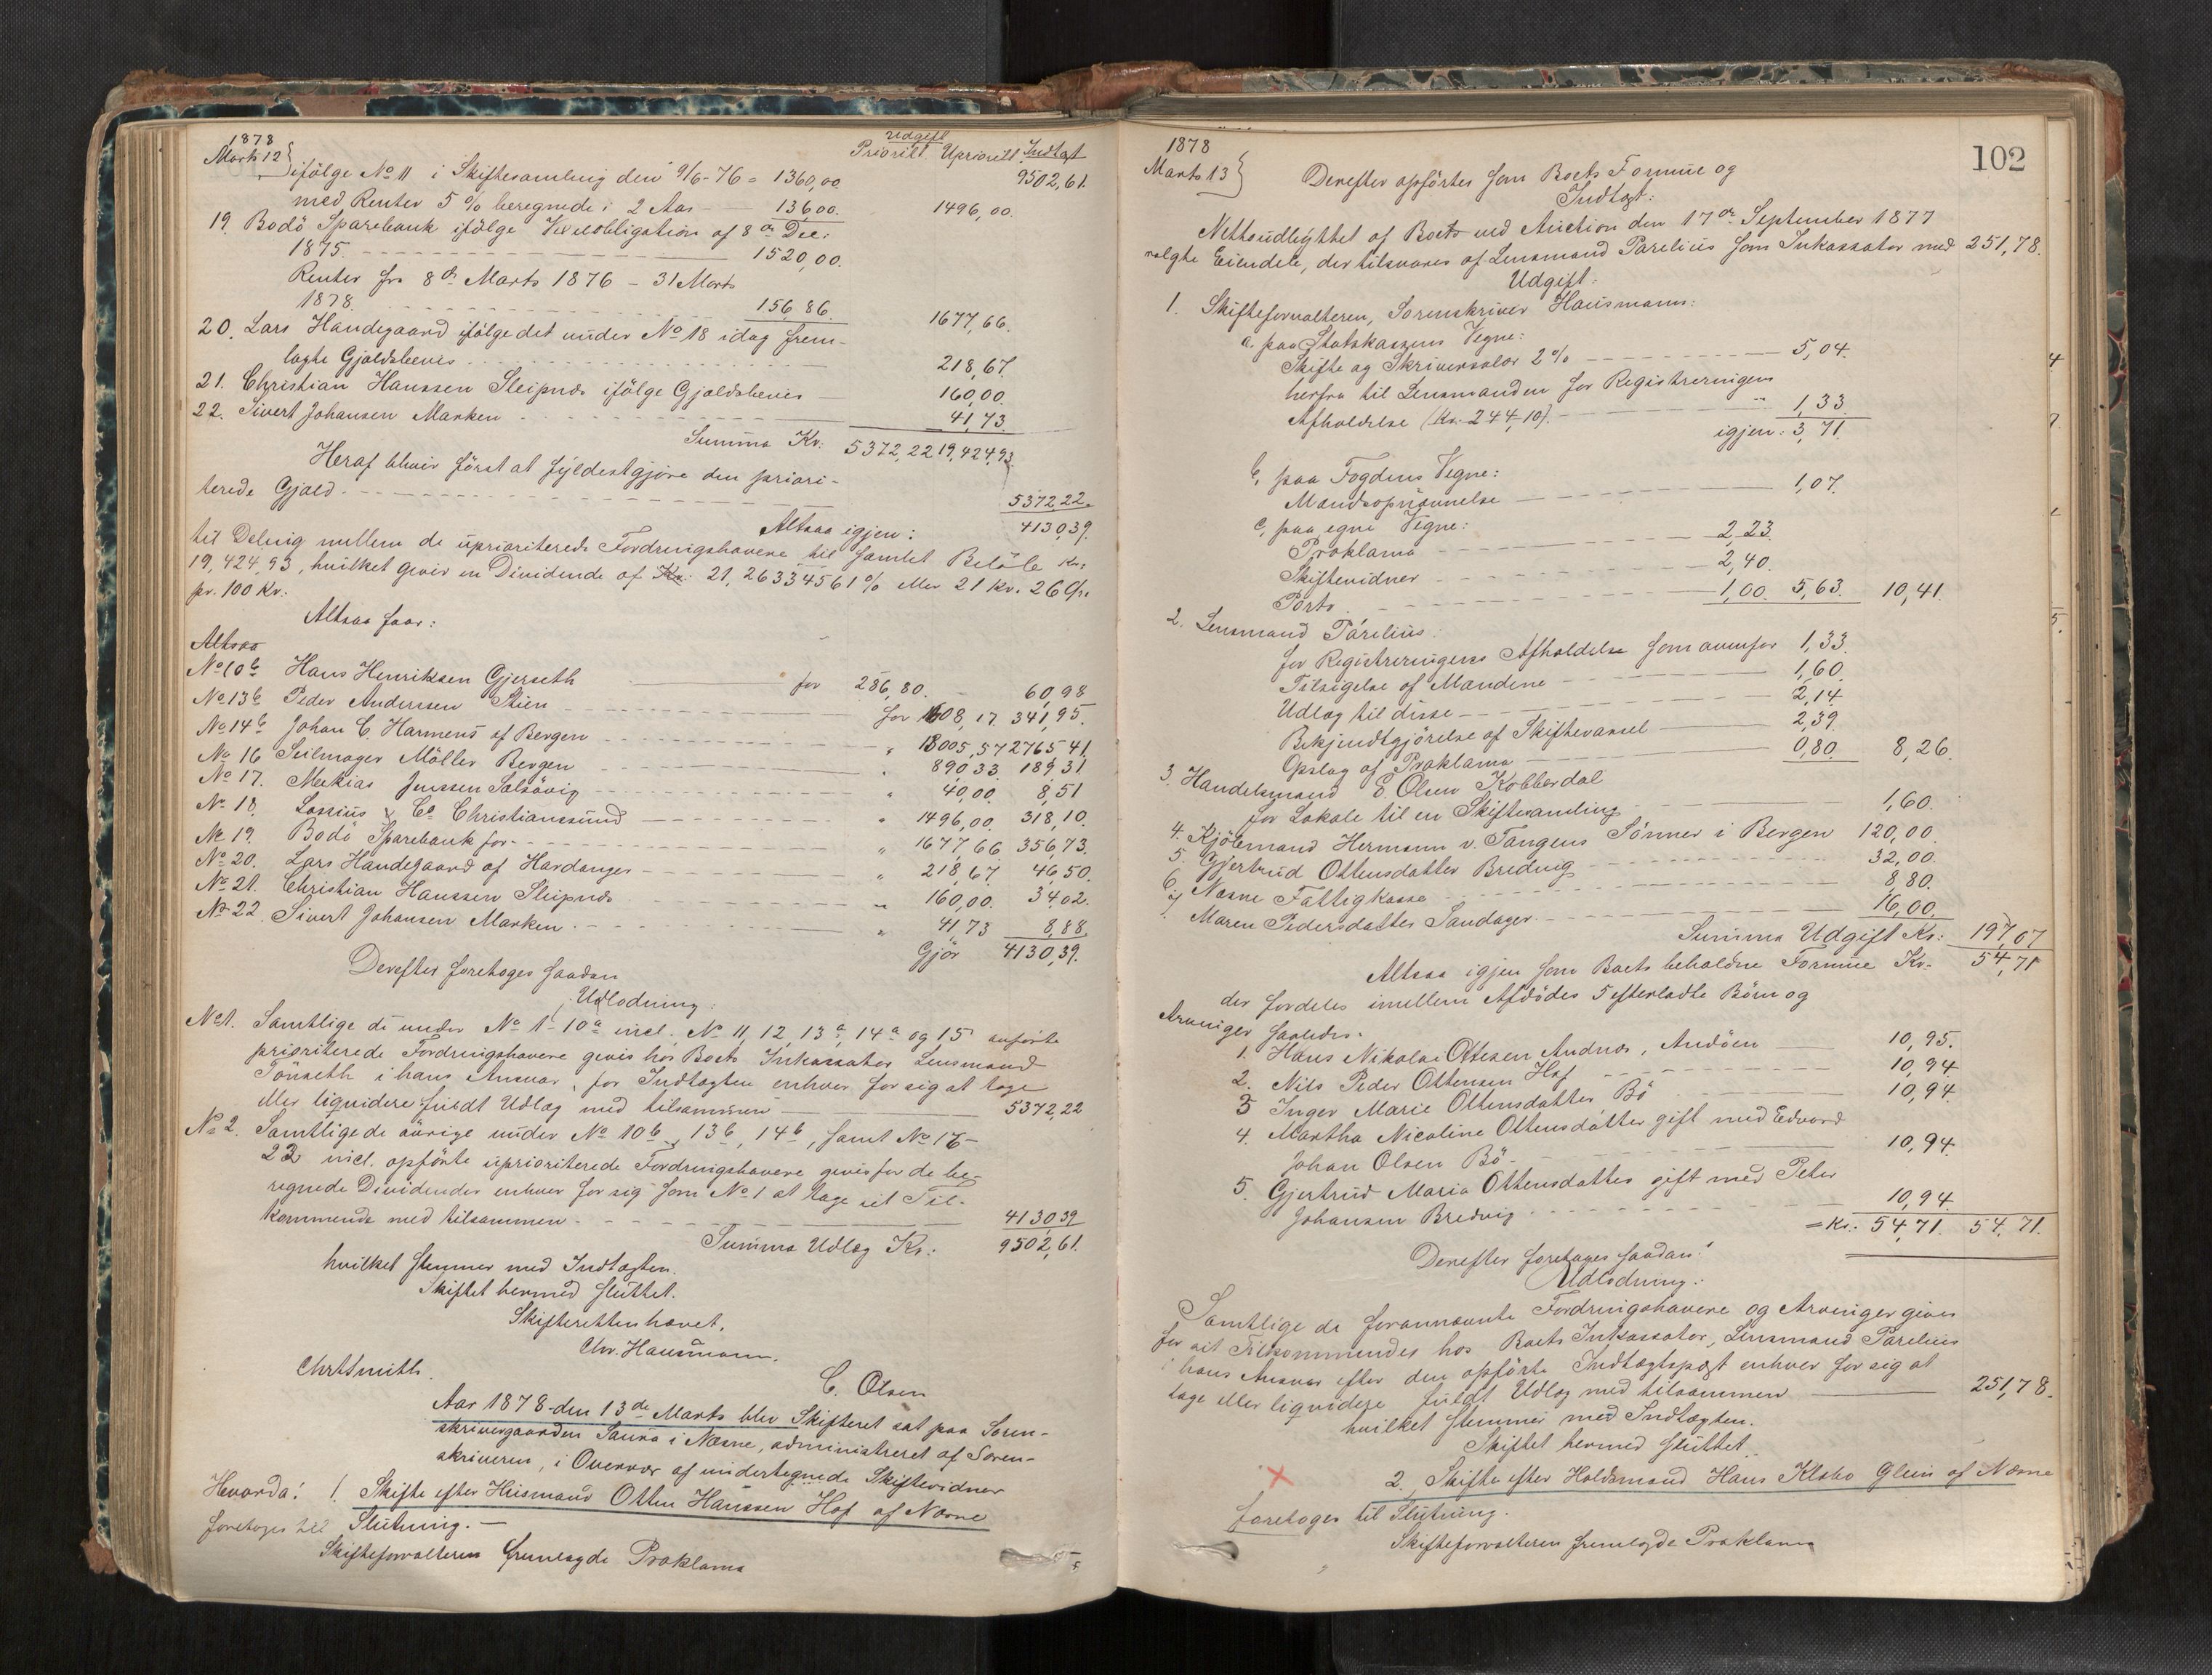 1878
Marts 12
Udgift
Priorit. Upriorit. Indtægt
ifölge No 11 i Skiftesamling den 9/6-76 = 1360,00 9502,61.
med Renter 5 % beregnede i 2 Aar — 136,00. 1496,00.
19. Bodö Sparebank ifölge Vexelobligation af 8de Dec.
1875. 1520,00.
Renter fra 8de Marts 1876 - 31 Marts
1878. 156,86. 1677,66.
20. Lars Handegaard ifölge det under No 18 idag frem-
lagte Gjældsbevis 218,67.
21. Christian Hanssen Sleipnes ifölge Gjældsbevis 160,00.
22. Sivert Johansen Marken 41,73.
Summa Kr: 5372,22 19,424,93.
Heraf bliver först at fyldestgjöre den priori-
terede Gjæld. 5372,22.
Altsaa igjen: 4130,39.
til Deling mellem de uprioriterede Fordringshavere til samlet Belöb Kr.
19,424,93, hvilket giver en Dividende af Kr. 21,26334561 % eller 21 Kr. 26 Öre
pr. 100 Kr.
Altsaa faar:
Altsaa
No 10b Hans Henriksen Gjerseth for 286,80. 60,98
No 13b Peder Andersen Stien for 1608,17. 341,95.
No 14b Johan C. Harmens af Bergen " 13005,57 2765,41.
No 16 Seilmager Möller Bergen " 890,33. 189,31
No 17. Mekias Jenssen Solsövig " 40,00 8,51
No 18. Lossius & Co Christianssund " 1496,00. 318,10.
No 19. Bodö Sparebank for " 1677,66 356,73.
No 20. Lars Handegaard af Hardanger " 218,67. 46,50.
No 21. Christian Hanssen Sleipnes " 160,00. 34,02.
No 22. Sivert Johansen Marken " 41,73 8,88.
Gjör 4130,39.
Derefter foretoges saadan
Udlodning:
No 1. Samtlige de under No 1-10a incl. No 11, 12, 13a, 14a og 15 anförte
prioriterede Fordringshavere gives hos Boets Inkassator Lensmand
Tönseth i hans Ansvar for Indtægten enhver for sig at tage
eller liqvidere fuldt Udlæg med tilsammen 5372,22
No 2. Samtlige de övrige under No 10b, 13b, 14b, samt No 16-
22 incl. opförte uprioriterede Fordringshavere gives for de be-
regnede Dividender enhver for sig som No 1 at tage sit Til-
kommende med tilsammen 4130,39
Summa Udlæg Kr: 9502,61.
hvilket stemmer med Indtægten.
Skiftet hermed sluttet.
Skifteretten hævet.
Chr. Hausmann.
Chr. Smith.
C. Olsen
Aar 1878 den 13de Marts blev Skifteret sat paa Soren-
skrivergaarden Saura i Næsne, administreret af Soren-
skriveren, i Overvær af undertegnede Skiftevidner
Hvorda: 1. Skifte efter Huismand Otter Hanssen Hof af Næsne
foretoges til Slutning.—
Skifteforvalteren fremlagde Proklama
1878
Marts 13
102
Derefter opförtes som Boets Formue og
Indtægt:
Nettoudbyttet af Boets ved Auction den 17de September 1877
solgte Eiendele, der tilsvares af Lensmand Parelius som Inkassator med 251,78.
Udgift:
1. Skifteforvalteren, Sorenskriver Hausmann:
a. paa Statskassens Vegne:
Skifte og Skriversalær 2 % 5,04.
herfra til Lensmanden for Registreringens
Afholdelse (Kr. 244,10) 1,33.
igjen: 3,71.
b, paa Fogdens Vegne:
Mandsopnævnelse 1,07.
c, paa egne Vegne:
Proklama 2,23.
Skiftevidner 2,40.
Porto 1,00. 5,63. 10,41.
2. Lensmand Parelius:
for Registreringens Afholdelse som ovenfor 1,33.
Tilsigelse af Mændene 1,60.
Udlæg til disse 2,14.
Bekjendtgjörelse af Skiftevarsel 2,39.
Opslag af Proklama 0,80. 8,26.
3. Handelsmand E. Olsen Kobberdal
for Lokale til en Skiftesamling 1,60.
4. Kjöbmand Hermann v. Tangens Sönner i Bergen 120,00.
5. Gjertrud Ottensdatter Bredvig 32,00.
6. Næsne Fattigkasse 8,80.
7. Maren Pedersdatter Sandager 16,00.
Summa Udgift Kr: 197,07
Altsaa igjen som Boets beholdne Formue Kr. 54,71
der fordeles imellem Afdödes 5 efterladte Börn og
Arvinger saaledes:
1. Hans Nikolai Ottesen Andnes, Andöen 10,95.
2. Nils Peder Ottensen Hof 10,94.
3 Inger Marie Ottensdatter Bö 10,94.
4. Martha Nicoline Ottensdatter gift med Edvard
Johan Olsen Bö 10,94.
5. Gjertrud Maria Ottensdatter gift med Peter
Johansen Bredvig 10,94.
= Kr: 54,71. 54,71.
Derefter foretoges saadan:
Udlodning:
Samtlige de forannævnte Fordringshavere og Arvinger gives
for sit Tilkommende hos Boets Inkassator, Lensmand Parelius
i hans Ansvar efter den opförte Indtægtspost enhver for sig at
tage eller liqvidere fuldt Udlæg med tilsammen 251,78.
hvilket stemmer med Indtægten.
Skiftet hermed sluttet.
2. Skifte efter Holdsmand Hans Klæbo Glein af Næsne
foretoges til Slutning.
Skifteforvalteren fremlagde Proklama